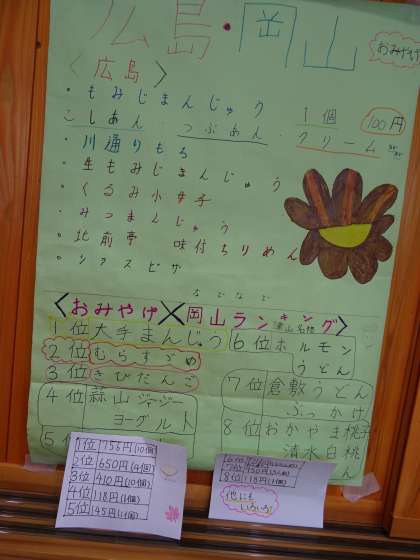 広島・岡山
おみやげ
<広島>
・もみじまんじゅう
こしあん・つぶあん・クリーム
1個
100円
川通りもち
・生もみじまんじゅう
・くるみ小女子
・みつまんじゅう
・北前亭 味付ちりめん
・リアスピザ
などなど
<おみやげ×岡山ランキング>
1位大手まんじゅう
2位むらすずめ
3位きびだんご
4位蒜山ジャージー
ヨーグルト
5位
6位ホルモン
うどん
7位倉敷うどん
ぶっかけ
8位おかやま桃子
清水白桃
1位756円(10個)
2位650円(4個)
3位410円(10個)
4位118円(1個)
5位145円(1個)
8位118円(1個)
他にも
いろいろ!